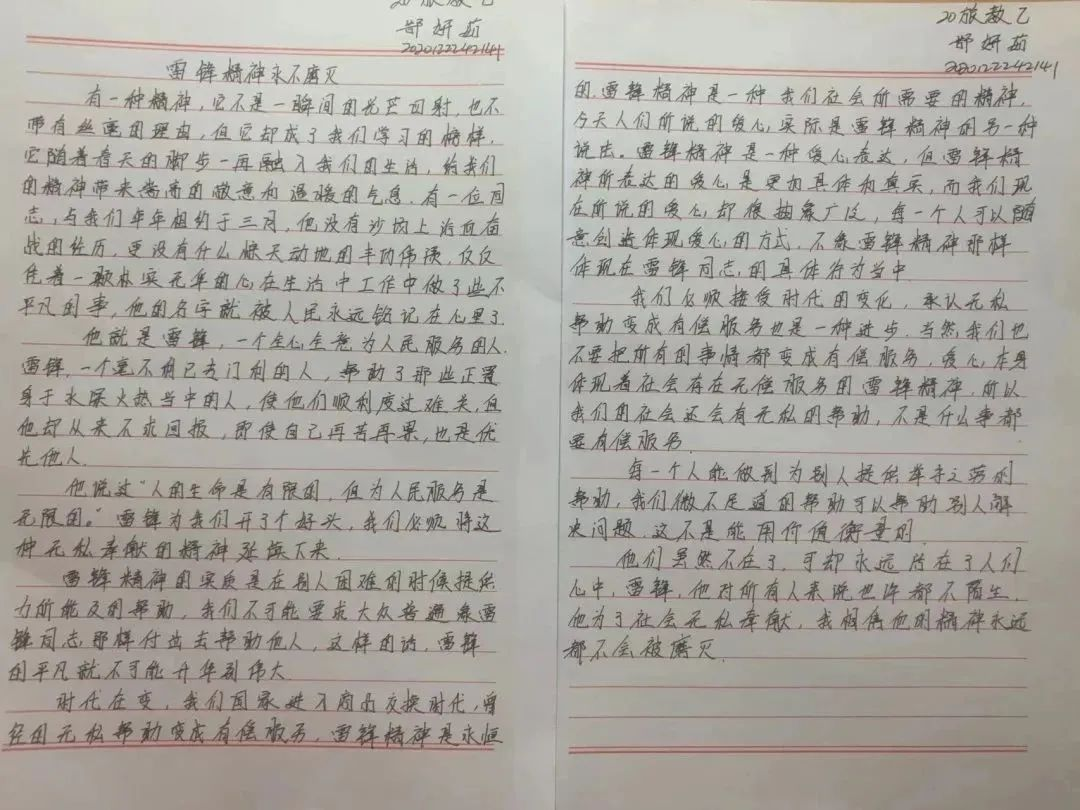 20旅教乙
郑妍茹
2020122242141
雷锋精神永不磨灭
有一种精神，它不是一瞬间的光芒四射，也不
带有丝毫的理由，但它却成了我们学习的榜样，
它随着春天的脚步一再融入我们的生活，给我们
的精神带来崇高的敬意和温暖的气息．有一位同
志，与我们年年相约于三月，他没有沙场上浴血奋
战的经历，更没有什么惊天动地的丰功伟绩，仅仅
凭着一颗朴实无华的心在生活中工作中做了些不
平凡的事，他的名字就被人民永远铭记在心里了．
他就是雷锋，一个全心全意为人民服务的人．
雷锋，一个毫不利己专门利的人，帮助了那些正置
身于水深火热当中的人，使他们顺利度过难关，但
他却从来不求回报，即使自己再苦再累，也是优
先他人．
他说过“人的生命是有限的，但为人民服务是
无限的。”雷锋为我们开了个好头，我们必须将这
种无私奉献的精神延续下来．
雷锋精神的实质是在别人困难的时候提供
力所能及的帮助，我们不可能要求大众普通象雷
锋同志那样付出去帮助他人，这样的话，雷锋
的平凡就不可能升华到伟大
时代在变，我们国家进入商品交换时代，曾
经的无私帮助变成有偿服务，雷锋精神是永恒
20旅教乙
郑妍茹
2020122242141
的．雷锋精神是一种我们社会所需要的精神，
今天人们所说的爱心，实际是雷锋精神的另一种
说法。雷锋精神是一种爱心表达，但雷锋精
神所表达的爱心是更加具体和真实，而我们现
在所说的爱心，却很抽象广泛，每一个人可以随
意创造体现爱心的方式．不象雷锋精神那样
体现在雷锋同志的具体行为当中
我们必顺接受时代的变化，承认无私
帮助变成有偿服务也是一种进步．当然，我们也
不要把所有的事情都变成有偿服务，爱心，本身
体现着社会存在无偿服务的雷锋精神．所以
我们的社会还会有无私的帮助，不是什么事都
要有偿服务．
每一个人能做到为别人提供举手之劳的
帮助，我们微不足道的帮助可以帮助别人解
决问题．这不是能用价值衡量的
他们虽然不在了，可却永远活在了人们
心中，雷锋，他对所有人来说也许都不陌生．
他为了社会无私奉献，我相信他的精神永远
都不会被磨灭．